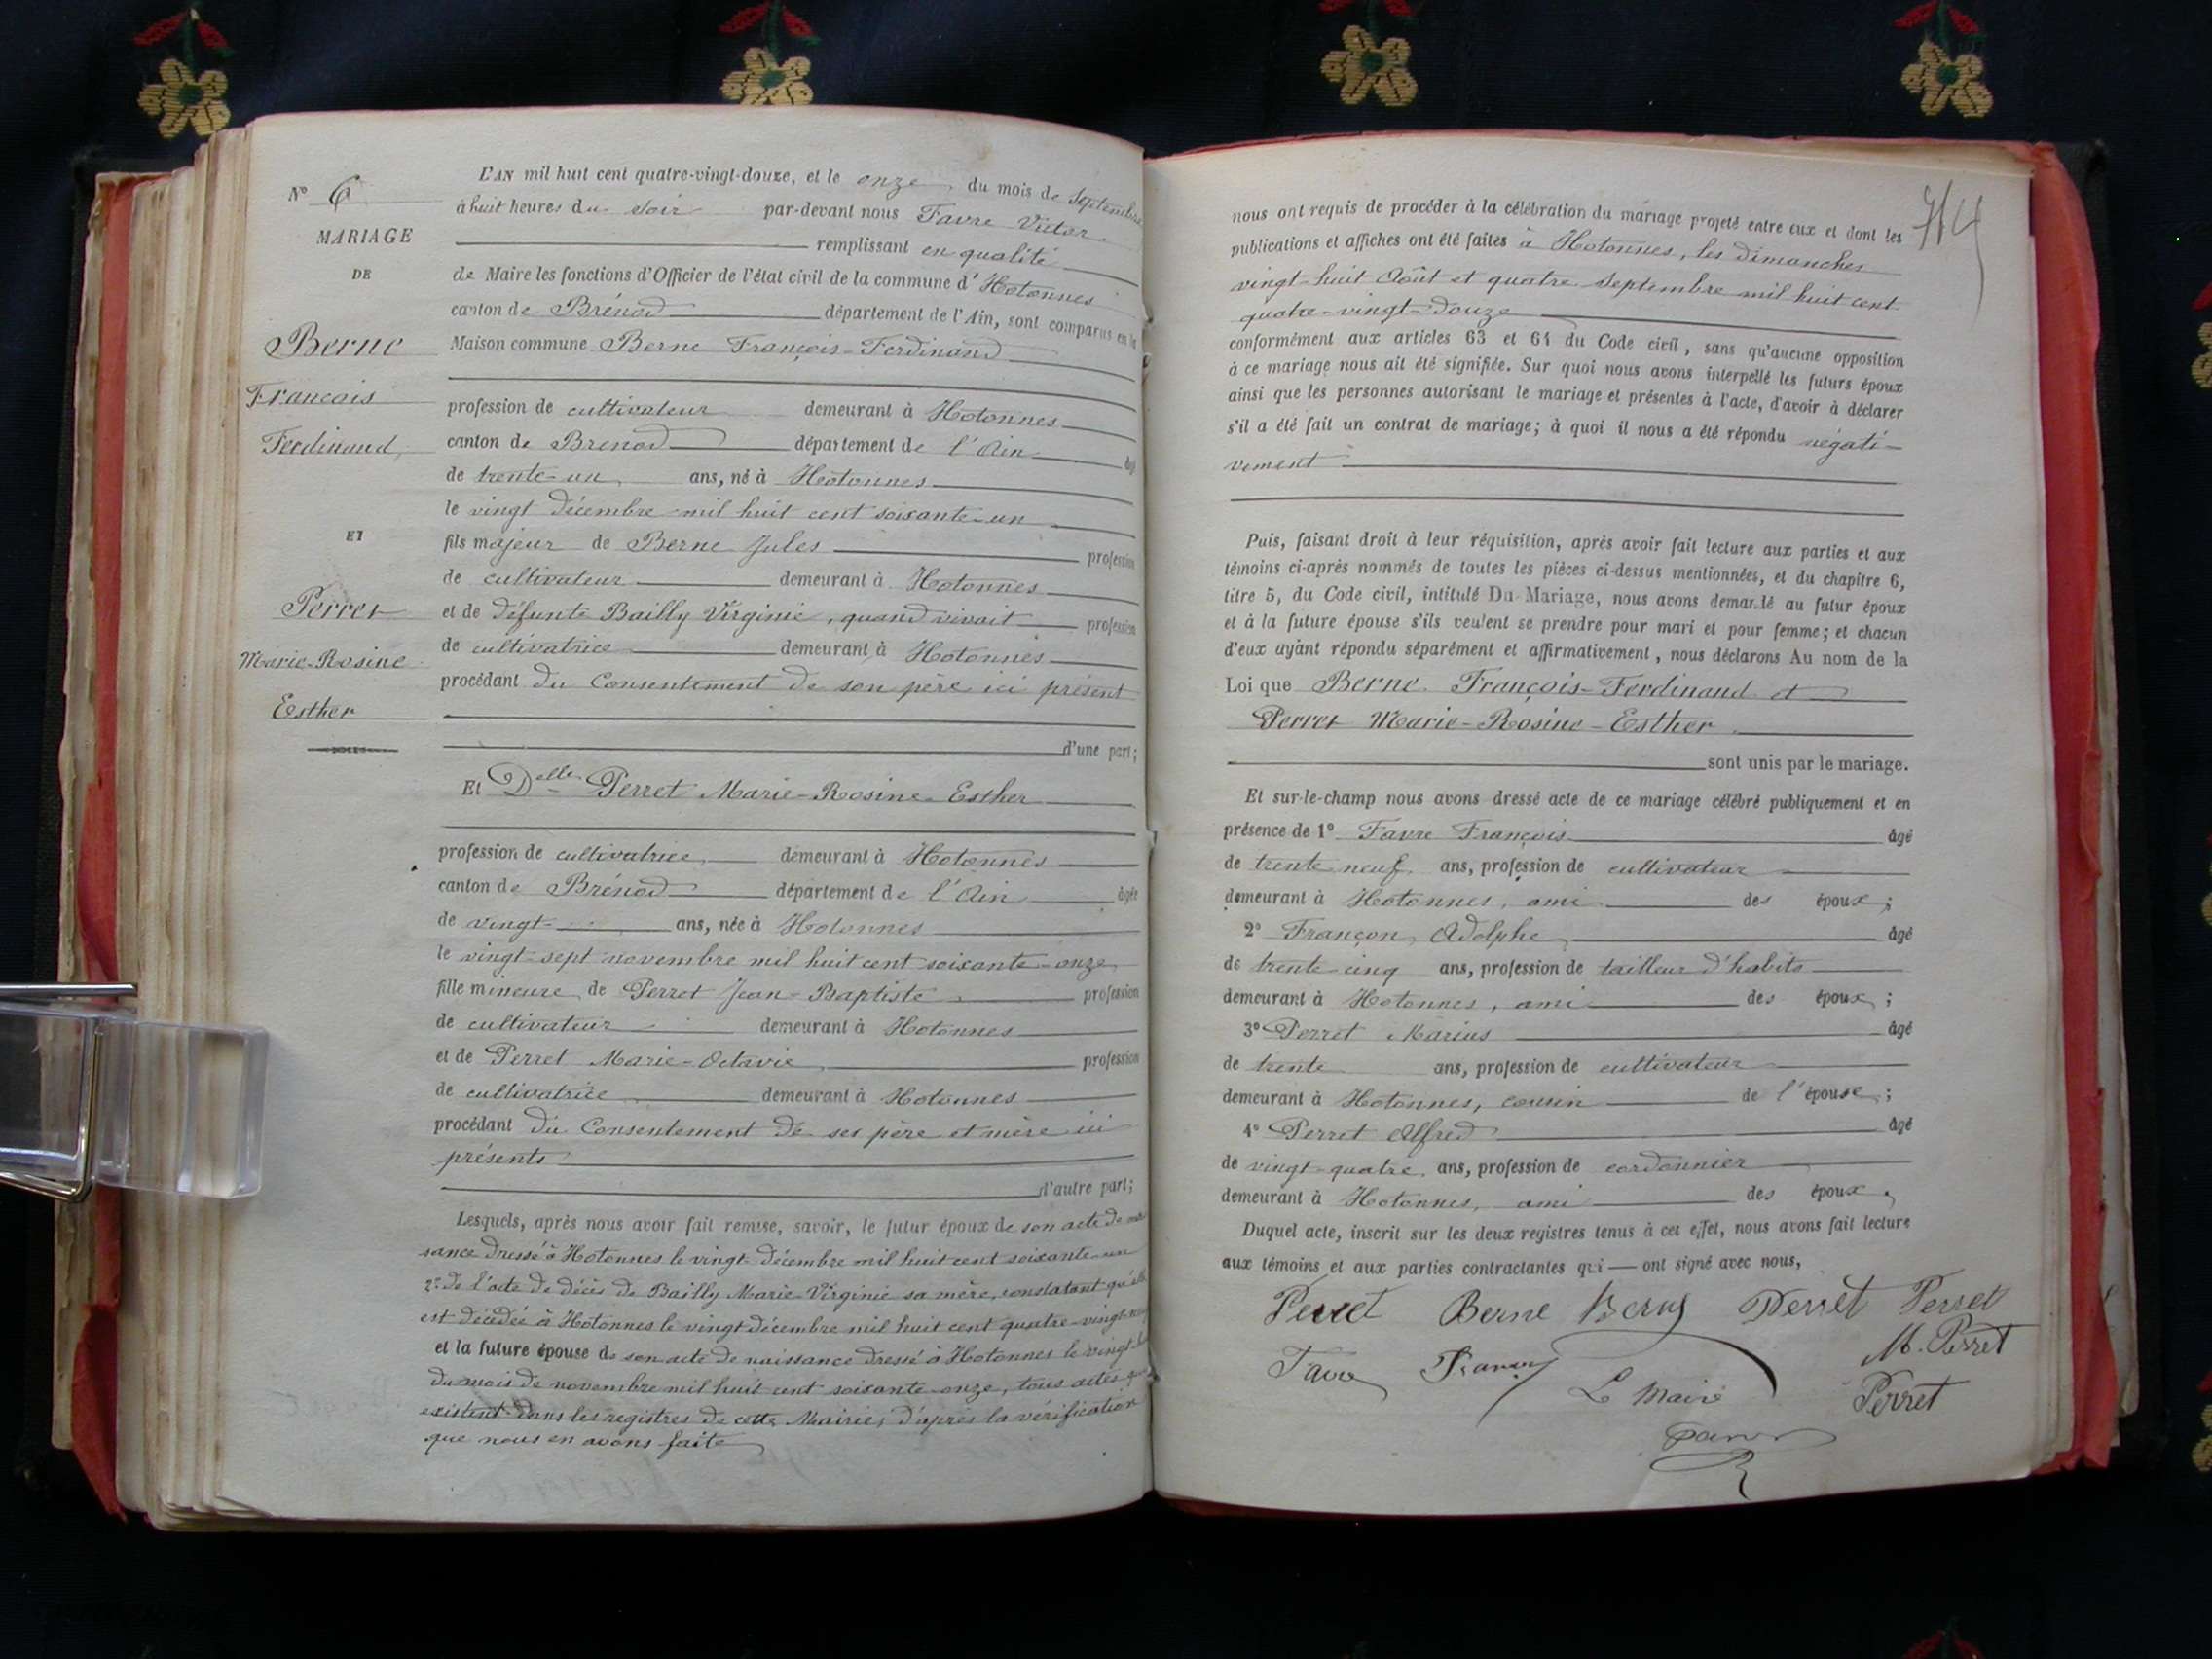 N° 6
MARIAGE
DE
Berne
François
Ferdinand,
ET
Perret
Marie-Rosine
Esther
L'AN mil huit cent quatre-vingt-douze, et le onze du mois de Septembre
à huit heures du soir par-devant nous Favre Victor
remplissant en qualité
de Maire les fonctions d'Officier de l'état civil de la commune d'Hotonnes
canton de Brénod département de l'Ain, sont comparus en la
Maison commune Berne François-Ferdinand
profession de cultivateur demeurant à Hotonnes
canton de Brenod département de l'Ain âgé
de trente-un ans, né à Hotonnes
le vingt décembre mil huit cent soixante-un
fils majeur de Berne Jules profession
de cultivateur demeurant à Hotonnes
et de défunte Bailly Virginie, quand vivait profession
de cultivatrice demeurant à Hotonnes
procédant du Consentement de son père ici présent
d'une part;
Et Delle Perret Marie-Rosine-Esther
profession de cultivatrice demeurant à Hotonnes
canton de Brénod département de l'Ain âgée
de vingt ans, née à Hotonnes
le vingt-sept novembre mil huit cent soixante-onze
fille mineure de Perret Jean-Baptiste profession
de cultivateur demeurant à Hotonnes
et de Perret Marie-Octavie profession
de cultivatrice demeurant à Hotonnes
procédant du Consentement de ses père et mère ici
présents
d'autre part;
Lesquels, après nous avoir fait remise, savoir, le futur époux de son acte de
sance dressé à Hotonnes le vingt décembre mil huit cent soixante-un
2° de l'acte de décès de Bailly Marie-Virginie sa mère, constatant qu'elle
est décédée à Hotonnes le vingt décembre mil huit cent quatre-vingt
et la future épouse de son acte de naissance dressé à Hotonnes le vingt
du mois de novembre mil huit cent soixante-onze, tous actes qui
existent dans les registres de cette Mairie, d'après la vérification
que nous en avons faite
714
nous ont requis de procéder à la célébration du mariage projeté entre eux et dont les
publications et affiches ont été faites à Hotonnes, les dimanches
vingt-huit Août et quatre Septembre mil huit cent
quatre-vingt-douze
conformément aux articles 63 et 64 du Code civil, sans qu'aucune opposition
à ce mariage nous ait été signifiée. Sur quoi nous avons interpellé les futurs époux
ainsi que les personnes autorisant le mariage et présentes à l'acte, d'avoir à déclarer
s'il a été fait un contrat de mariage; à quoi il nous a été répondu négati-
vement
Puis, faisant droit à leur réquisition, après avoir fait lecture aux parties et aux
témoins ci-après nommés de toutes les pièces ci-dessus mentionnées, et du chapitre 6,
titre 5, du Code civil, intitulé Du Mariage, nous avons demandé au futur époux
et à la future épouse s'ils veulent se prendre pour mari et pour femme; et chacun
d'eux ayant répondu séparément et affirmativement, nous déclarons Au nom de la
Loi que Berne François-Ferdinand et
Perret Marie-Rosine-Esther
sont unis par le mariage.
Et sur-le-champ nous avons dressé acte de ce mariage célébré publiquement et en
présence de 1° Favre François âgé
de trente neuf ans, profession de cultivateur
demeurant à Hotonnes, ami des époux;
2° Françon Adolphe âgé
de trente-cinq ans, profession de tailleur d'habits
demeurant à Hotonnes, ami des époux;
3° Perret Marius âgé
de trente ans, profession de cultivateur
demeurant à Hotonnes, cousin de l'épouse;
4° Perret Alfred âgé
de vingt-quatre ans, profession de cordonnier
demeurant à Hotonnes, ami des époux,
Duquel acte, inscrit sur les deux registres tenus à cet effet, nous avons fait lecture
aux témoins et aux parties contractantes qui ont signé avec nous,
Perret Berne Berne Perret Perret
M. Perret
Favre Françon Le Maire Perret
Favre